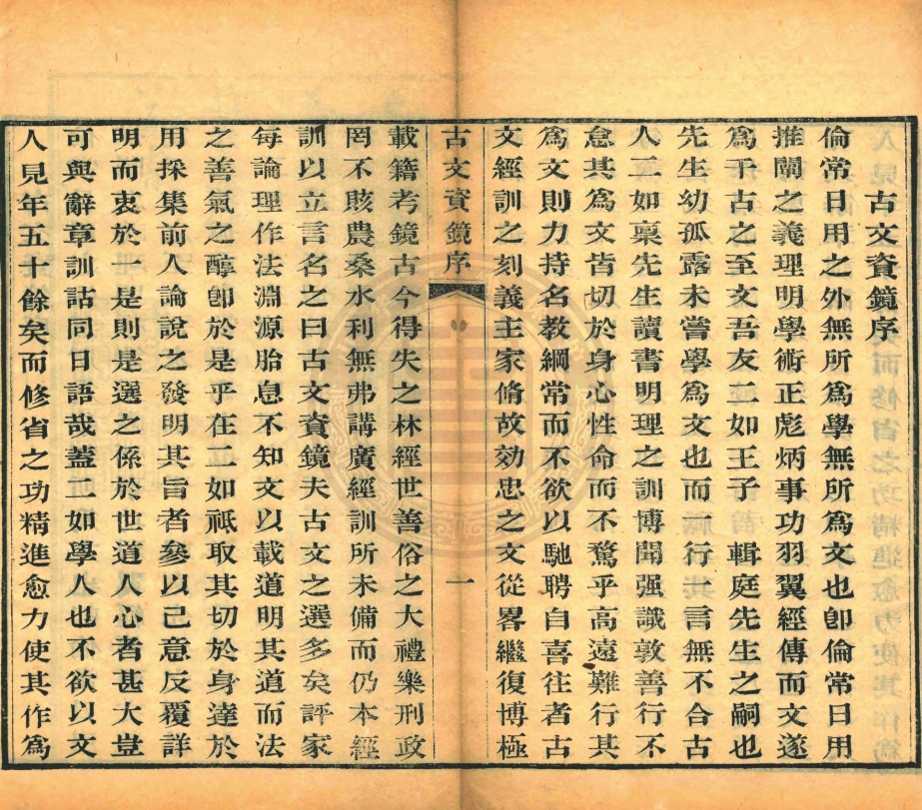 古文資鏡序
倫常日用之外無所爲學無所爲文也卽倫常日用
推闡之義理明學術正彪炳事功羽翼經傳而文遂
爲千古之至文吾友二如王子 輯庭先生之嗣也
先生幼孤露未嘗學爲文也而行一言無不合古
人二如稟先生讀書明理之訓博聞强識敦善行不
怠其爲文皆切於身心性命而不騖乎高遠難行其
爲文則力持名教綱常而不欲以馳騁自喜往者古
文經訓之刻義主家脩故効忠之文從畧繼復博極
古文資鏡序
一
載籍考鏡古今得失之林經世善俗之大禮樂刑政
罔不賅農桑水利無弗講廣經訓所未備而仍本經
訓以立言名之曰古文資鏡夫古文之選多矣評家
每論理作法淵源胎息不知文以載道明其道而法
之善氣之醇卽於是乎在二如祗取其切於身達於
用採集前人論說之發明其旨者參以己意反覆詳
明而衷於一是則是選之係於世道人心者甚大豈
可與辭章訓詁同日語哉蓋二如學人也不欲以文
人見年五十餘矣而修省之功精進愈力使其作爲